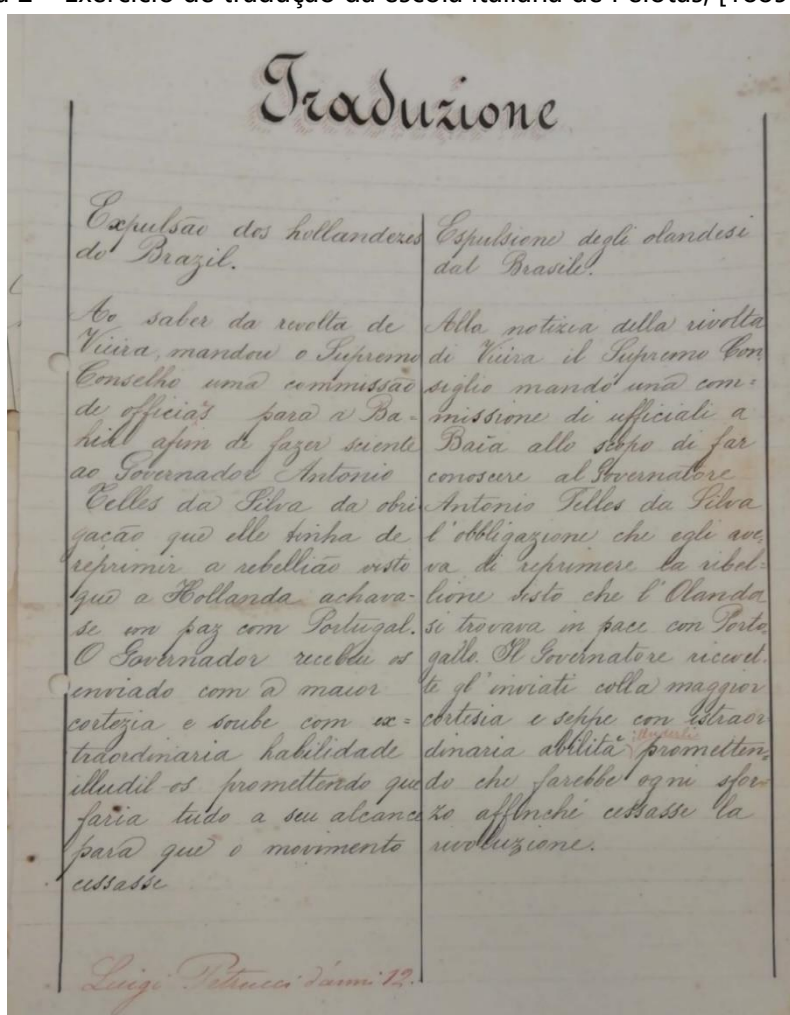 Exercício de tradução da escola italiana de Pelotas,
Traduzione
Expulsão dos hollandezes
do Brazil.
Ao saber da revolta de
Vieira, mandou o Supremo
Conselho uma commissão
de officiás para a Ba-
hia afim de fazer sciente
ao Governador Antonio
Telles da Silva da obri
gacão que elle tinha de
reprimir a rebellião visto
que a Hollanda achava-
se em paz com Portugal.
O Governador recebeu os
enviado com a maior
cortezia e soube com ex=
traordinaria habilidade
illudil-os promettendo que
faria tudo a seu alcance
para que o movimento
cessasse
Luigi Petrucci d'anni 12.
Espulsione degli olandesi
dal Brasile.
Alla notizia della rivolta
di Vieira il Supremo Con
siglio mandò una com=
missione di ufficiali a
Baïa allo scopo di far
conoscere al Governatore
Antonio Telles da Silva
l'obbligazione che egli ave,
va di reprimere la ribel=
lione visto che l'Olanda
si trovava in pace con Porto,
gallo. Il Governatore ricevet.
te gl'inviati colla maggior
cortesia e seppe con istraor
dinaria abilità illuderli prometten,
do che farebbe ogni sfor,
zo affinché cessasse la
rivoluzione.